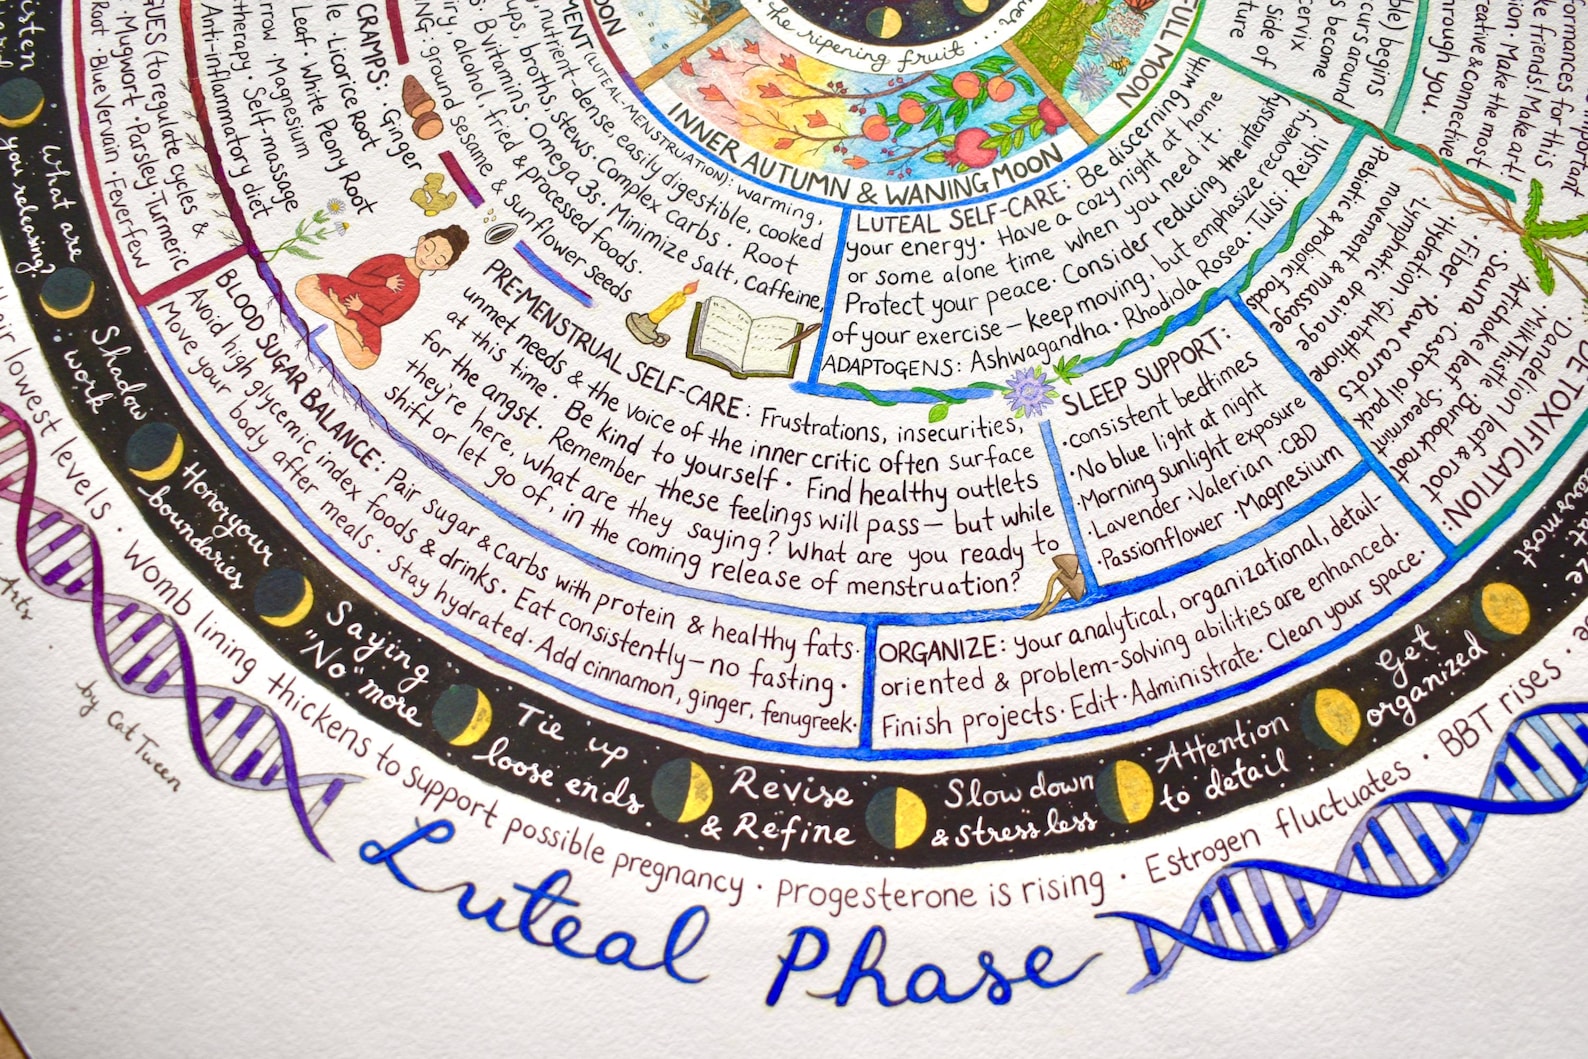 the ripening fruit . . .
INNER AUTUMN & WANING MOON
FULL MOON
MOON
LUTEAL SELF-CARE: Be discerning with
your energy · Have a cozy night at home
or some alone time when you need it ·
Protect your peace · Consider reducing the intensity
of your exercise – keep moving, but emphasize recovery
ADAPTOGENS: Ashwagandha · Rhodiola Rosea · Tulsi · Reishi
MENT (LUTEAL-MENSTRUATION): warming,
nutrient-dense, easily digestible, cooked
ups, broths, stews · Complex carbs · Root
B vitamins · Omega 3s · Minimize salt, caffeine,
iry, alcohol, fried & processed foods ·
NG: ground sesame & sunflower seeds
CRAMPS: · Ginger
Licorice Root
Leaf · White Peony Root
rrow · Magnesium
therapy · Self-massage
Anti-inflammatory diet
GUES (to regulate cycles &
· Mugwort · Parsley · Turmeric
Root · Blue Vervain · Feverfew
PRE-MENSTRUAL SELF-CARE: Frustrations, insecurities,
unmet needs & the voice of the inner critic often surface
at this time · Be kind to yourself · Find healthy outlets
for the angst · Remember these feelings will pass – but while
they're here, what are they saying? What are you ready to
shift or let go of, in the coming release of menstruation?
BLOOD SUGAR BALANCE: Pair sugar & carbs with protein & healthy fats ·
Avoid high glycemic index foods & drinks · Eat consistently – no fasting ·
Move your body after meals · Stay hydrated · Add cinnamon, ginger, fenugreek ·
SLEEP SUPPORT:
· consistent bedtimes
· No blue light at night
· Morning sunlight exposure
· Lavender · Valerian · CBD
· Passionflower · Magnesium
ORGANIZE: your analytical, organizational, detail-
oriented & problem-solving abilities are enhanced ·
Finish projects · Edit · Administrate · Clean your space ·
DETOXIFICATION:
Dandelion leaf & root
Milk Thistle · Burdock root
Artichoke leaf · Spearmint
Sauna · Castor oil pack
· Fiber · Raw carrots
· Hydration · Glutathione
· Lymphatic drainage
movement & massage
Prebiotic & probiotic foods
ble) begins
curs around
s become
cervix
side of
ture
important
formances for this
ke friends! Make art!
sion · Make the most
reative & connective
through you.
listen
you releasing?
what are
Shadow
work
Honor your
boundaries
Saying
"No" more
Tie up
loose ends
Revise
& Refine
Slow down
& stress less
Attention
to detail
Get
organized
most
eir lowest levels · Womb lining thickens to support possible pregnancy · Progesterone is rising · Estrogen fluctuates · BBT rises ·
Luteal Phase
Arts
by Cat Tween